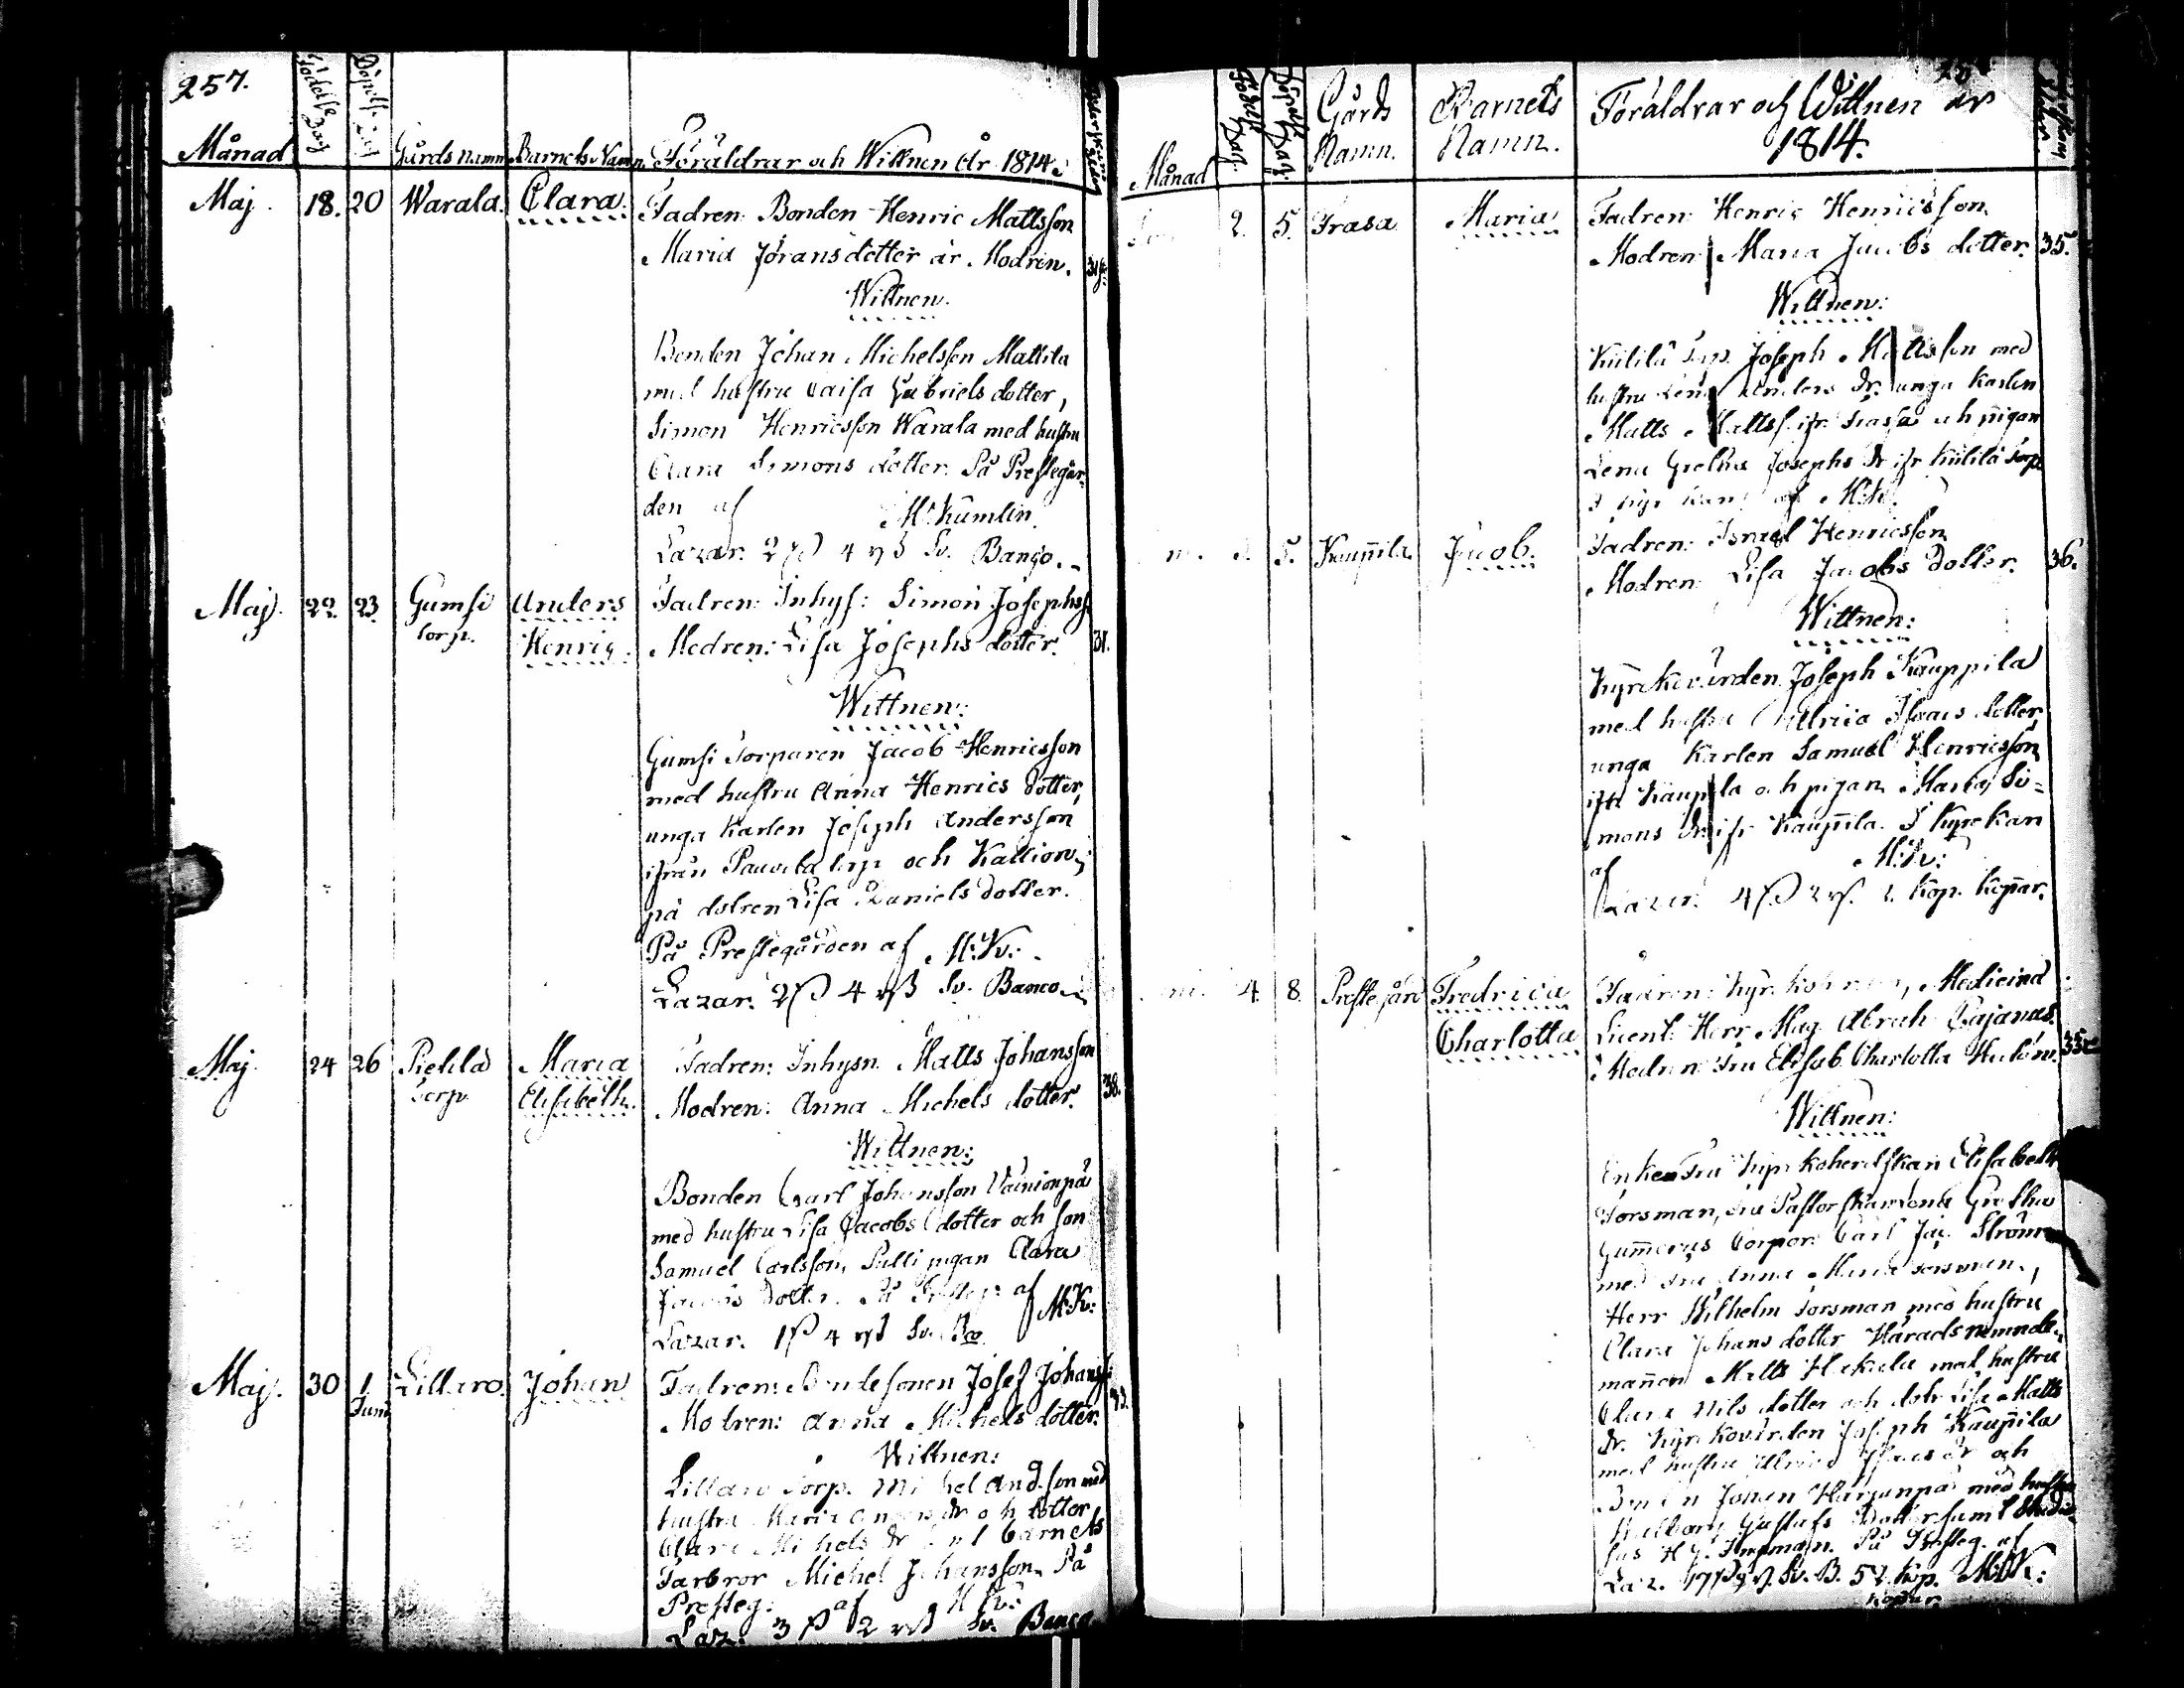 257.
Månad
Födelse Dag
Döpelse Dag
Gårds Namn
Barnets Namn
Föräldrar och Wittnen År 1814.
Maj. 18. 20 Warala. Clara.
Fadren: Bonden Henric Mattsson
Maria Jöransdotter är Modren.
Wittnen.
Bonden Johan Michelsson Mattila
med hustru Caisa Gabriels dotter,
Simon Henricsson Warala med hustru
Clara Simons dotter. På Prestegår-
den af M. Kumlin.
Lazar. 2 ß 4 rß Sv. Banco.
Maj. 22. 23. Gumsi torp. Anders Henric.
Fadren: Inhys: Simon Josephs.
Modren: Lisa Josephs dotter. 31.
Wittnen:
Gumsi Torparen Jacob Henricsson
med hustru Anna Henrics dotter,
unga Karlen Joseph Andersson
ifrån torp och Kallion-
på dotren Lisa Daniels dotter.
På Prestegården af M. K:
Lazar. 2 ß 4 rß Sv. Banco.
Maj. 24 26 Torp. Maria Elisabeth.
Fadren: Inhysn. Matts Johansson
Modren: Anna Michels dotter. 38.
Wittnen:
Bonden Carl Johansson Vainionpää
med hustru Lisa Jacobs dotter och son
Samuel Carlsson, pigan Clara
Jacobs dotter. På Presteg: af M. K:
Lazar. 1 ß 4 rß Sv. Bco.
Maj. 30 1 Juni Lillaro. Johan
Fadren: Bondesonen Josef Johanss.
Modren: Anna Michels dotter. 43.
Wittnen:
Lillaro Torp. Michel And.son med
hustru Maria dr och dotter
Clara Michels dr samt barnets
Farbror Michel Johansson. På
Presteg: af M K:
Laz: 3 ß 2 rß Sv. Banco
Månad
Födelse Dag.
Döpelse Dag.
Gårds Namn.
Barnets Namn.
Föräldrar och Wittnen År
1814.
2. 5. Frasa Maria
Fadren: Henric Henricsson
Modren: Maria Jacobs dotter. 35.
Wittnen:
Kiililä Torp. Joseph Mattsson med
hustru Lena Anders dr. unga Karlen
Matts Mattss. ifr. Frasa och pigan
Lena Gretha Josephs dr ifr Kiililä Torp
I Kyrkan af M: K.
5. Kauppila Jacob.
Fadren: Israel Henricsson
Modren: Lisa Jacobs Dotter. 36.
Wittnen:
Kyrkovärden Joseph Kauppila
med hustru Ulrica Isaacs dotter,
unga Karlen Samuel Henricsson
ifr. Kauppila och pigan Maria Si-
mons dr ifr Kauppila. I Kyrkan
af M: K:
Lazar: 4 ß 2 rß. 2 Kop. Koppar.
4. 8. Prestegård Fredrica Charlotta
Fadren: Kyrkoherden, Medicinä
Licent. Herr Mag. Abrah. Cajanus.
Modren Fru Elisab. Charlotta 35
Wittnen:
Enke Fru Kyrkoherdskan Elisabeth
Forsman, Fru Pastorskan Lena Gretha
Gummerus Corpor. Carl Jac.
med Fru Anna Maria Forsman,
Herr Wilhelm Forsman med hustru
Clara Johans dotter Häradsnämnde-
mannen Matts med hustru
Clara Nils dotter och dotr. Lisa Matts
dr. Kyrkovärden Joseph Kauppila
med hustru Ulrica Isaacs dr och
Bonden Johan Harjunpää med hustru
Wallborg Gustafs Dotter samt
På Presteg. af
Laz. Sv. B. 52 Kop. M: K:
Koppar